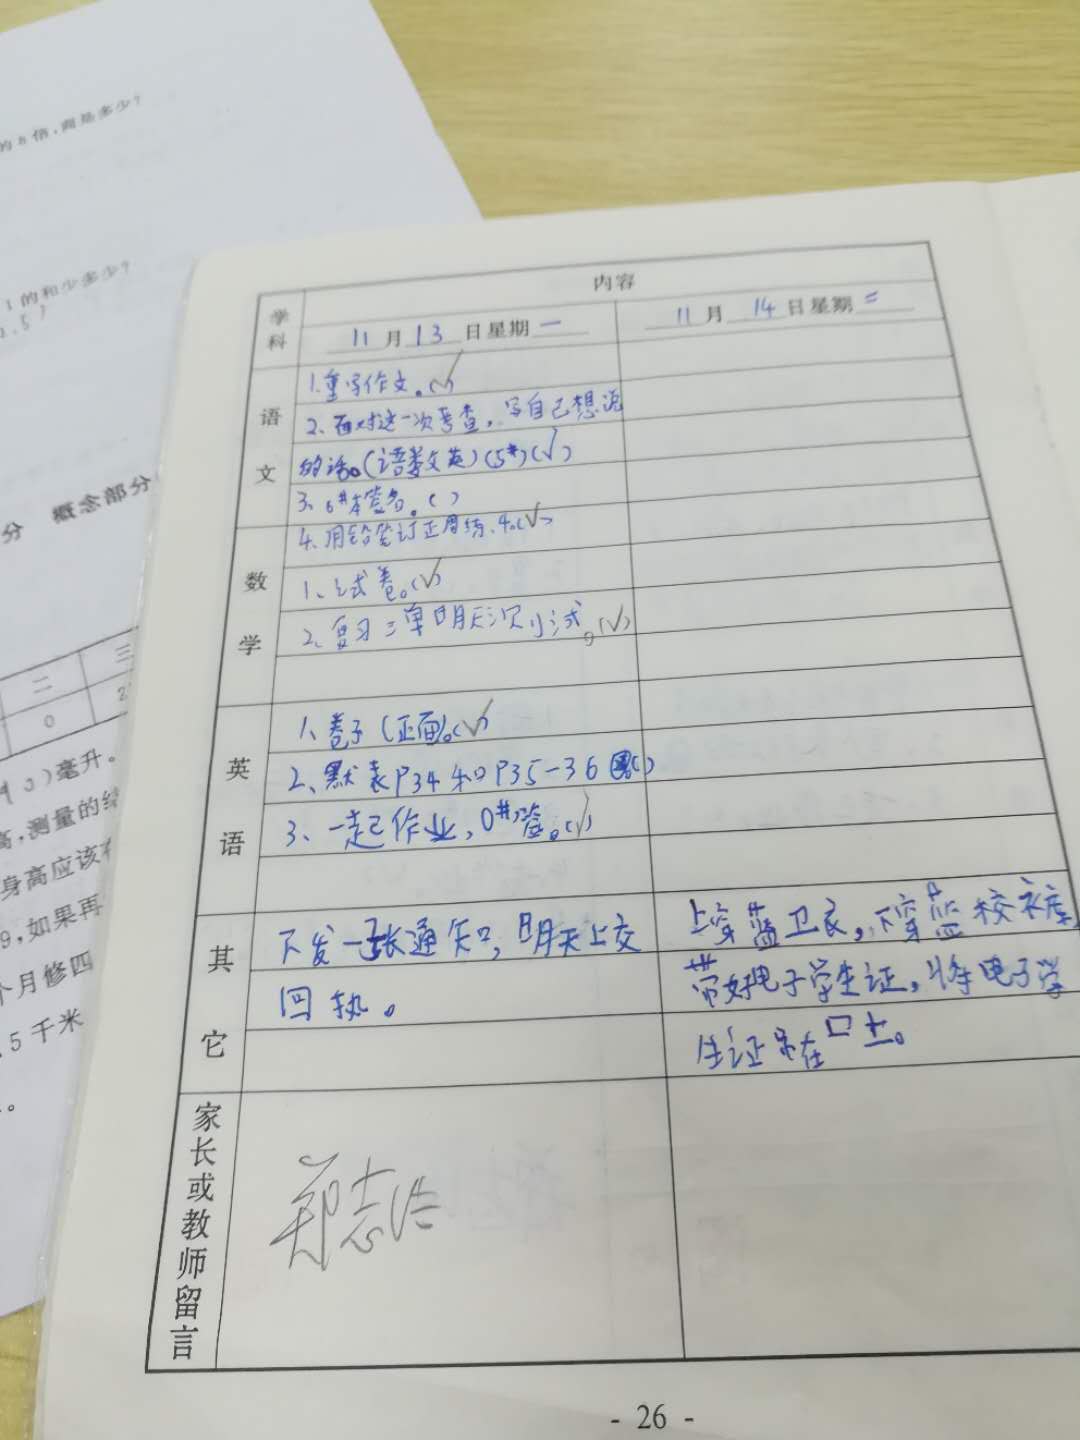 的8倍,商是多少?
1的和少多少?
分 概念部分
二 三
0 2
0)毫升。
高,测量的结
身高应该在
9,如果再
个月修四
.5千米
学科 内容
11月13日星期一 11月14日星期二
语文
1.重写作文。(√)
2、面对这一次考查,写自己想说
的话。(语数英)(5#)(√)
3、6#本签名。( )
4、用铅笔订正周练.4.(√)
数学
1、试卷。(√)
2、复习三单明天测小试。(√)
英语
1、卷子(正面)。(√)
2、默表P34和P35-36( )
3、一起作业,0#签。(√)
其它
下发一张通知,明天上交
回执。
上穿蓝卫衣,下穿蓝校裤,
带好电子学生证,将电子学
生证吊在口上。
家长或教师留言
郑志浩
- 26 -